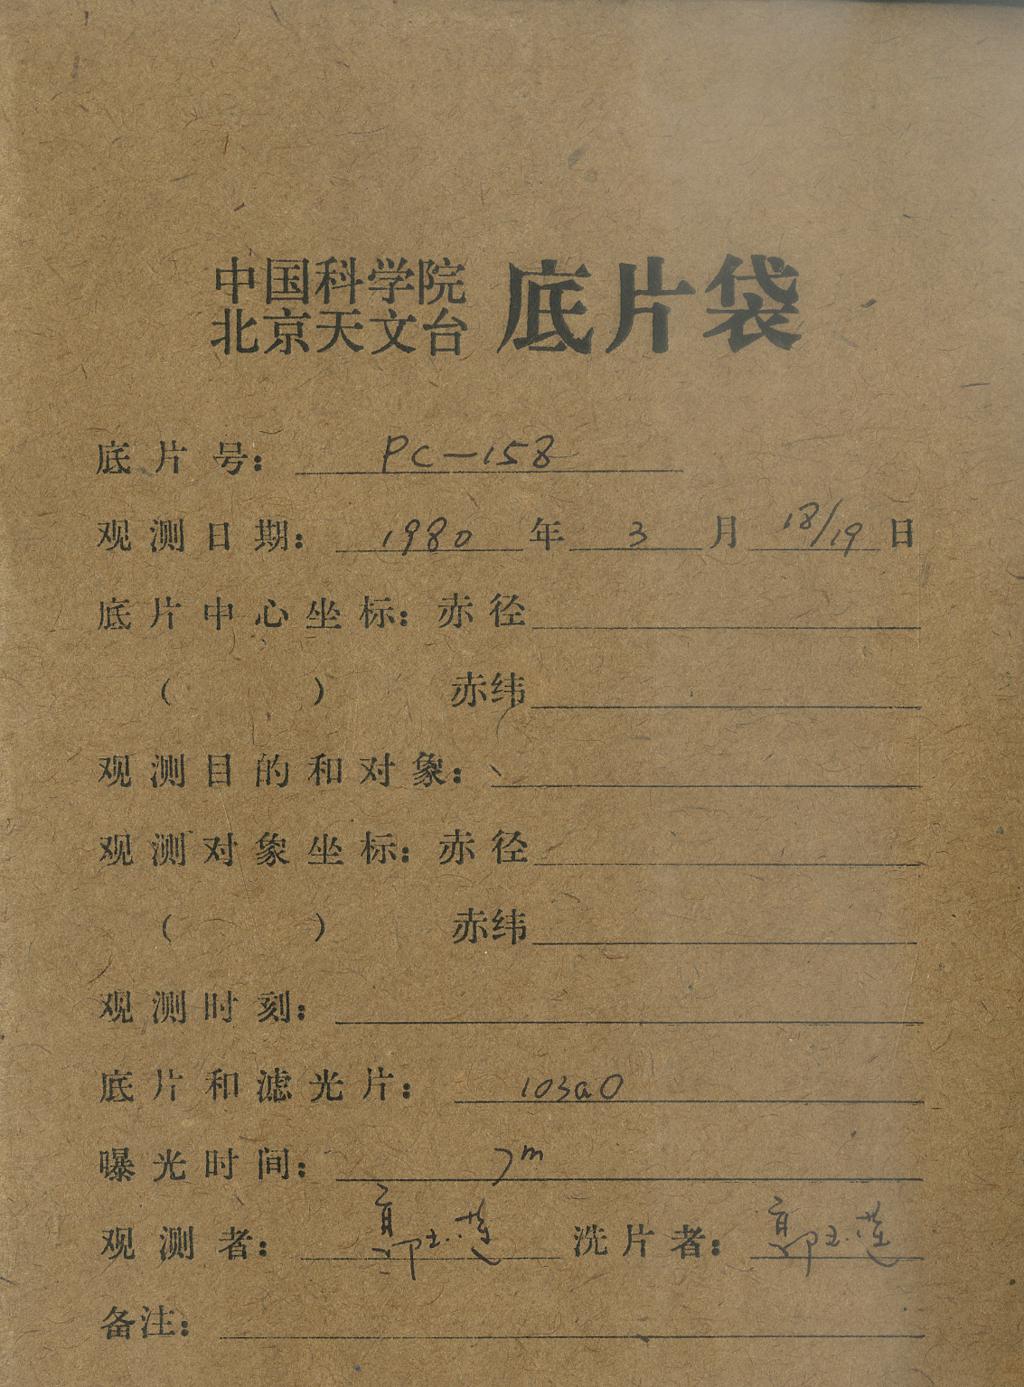 中国科学院
北京天文台 底片袋
底片号: PC-158
观测日期: 1980 年 3 月 18/19 日
底片中心坐标: 赤径
( ) 赤纬
观测目的和对象:
观测对象坐标: 赤径
( ) 赤纬
观测时刻:
底片和滤光片: 103aO
曝光时间: 7m
观测者: 郭玉莲 洗片者: 郭玉莲
备注: